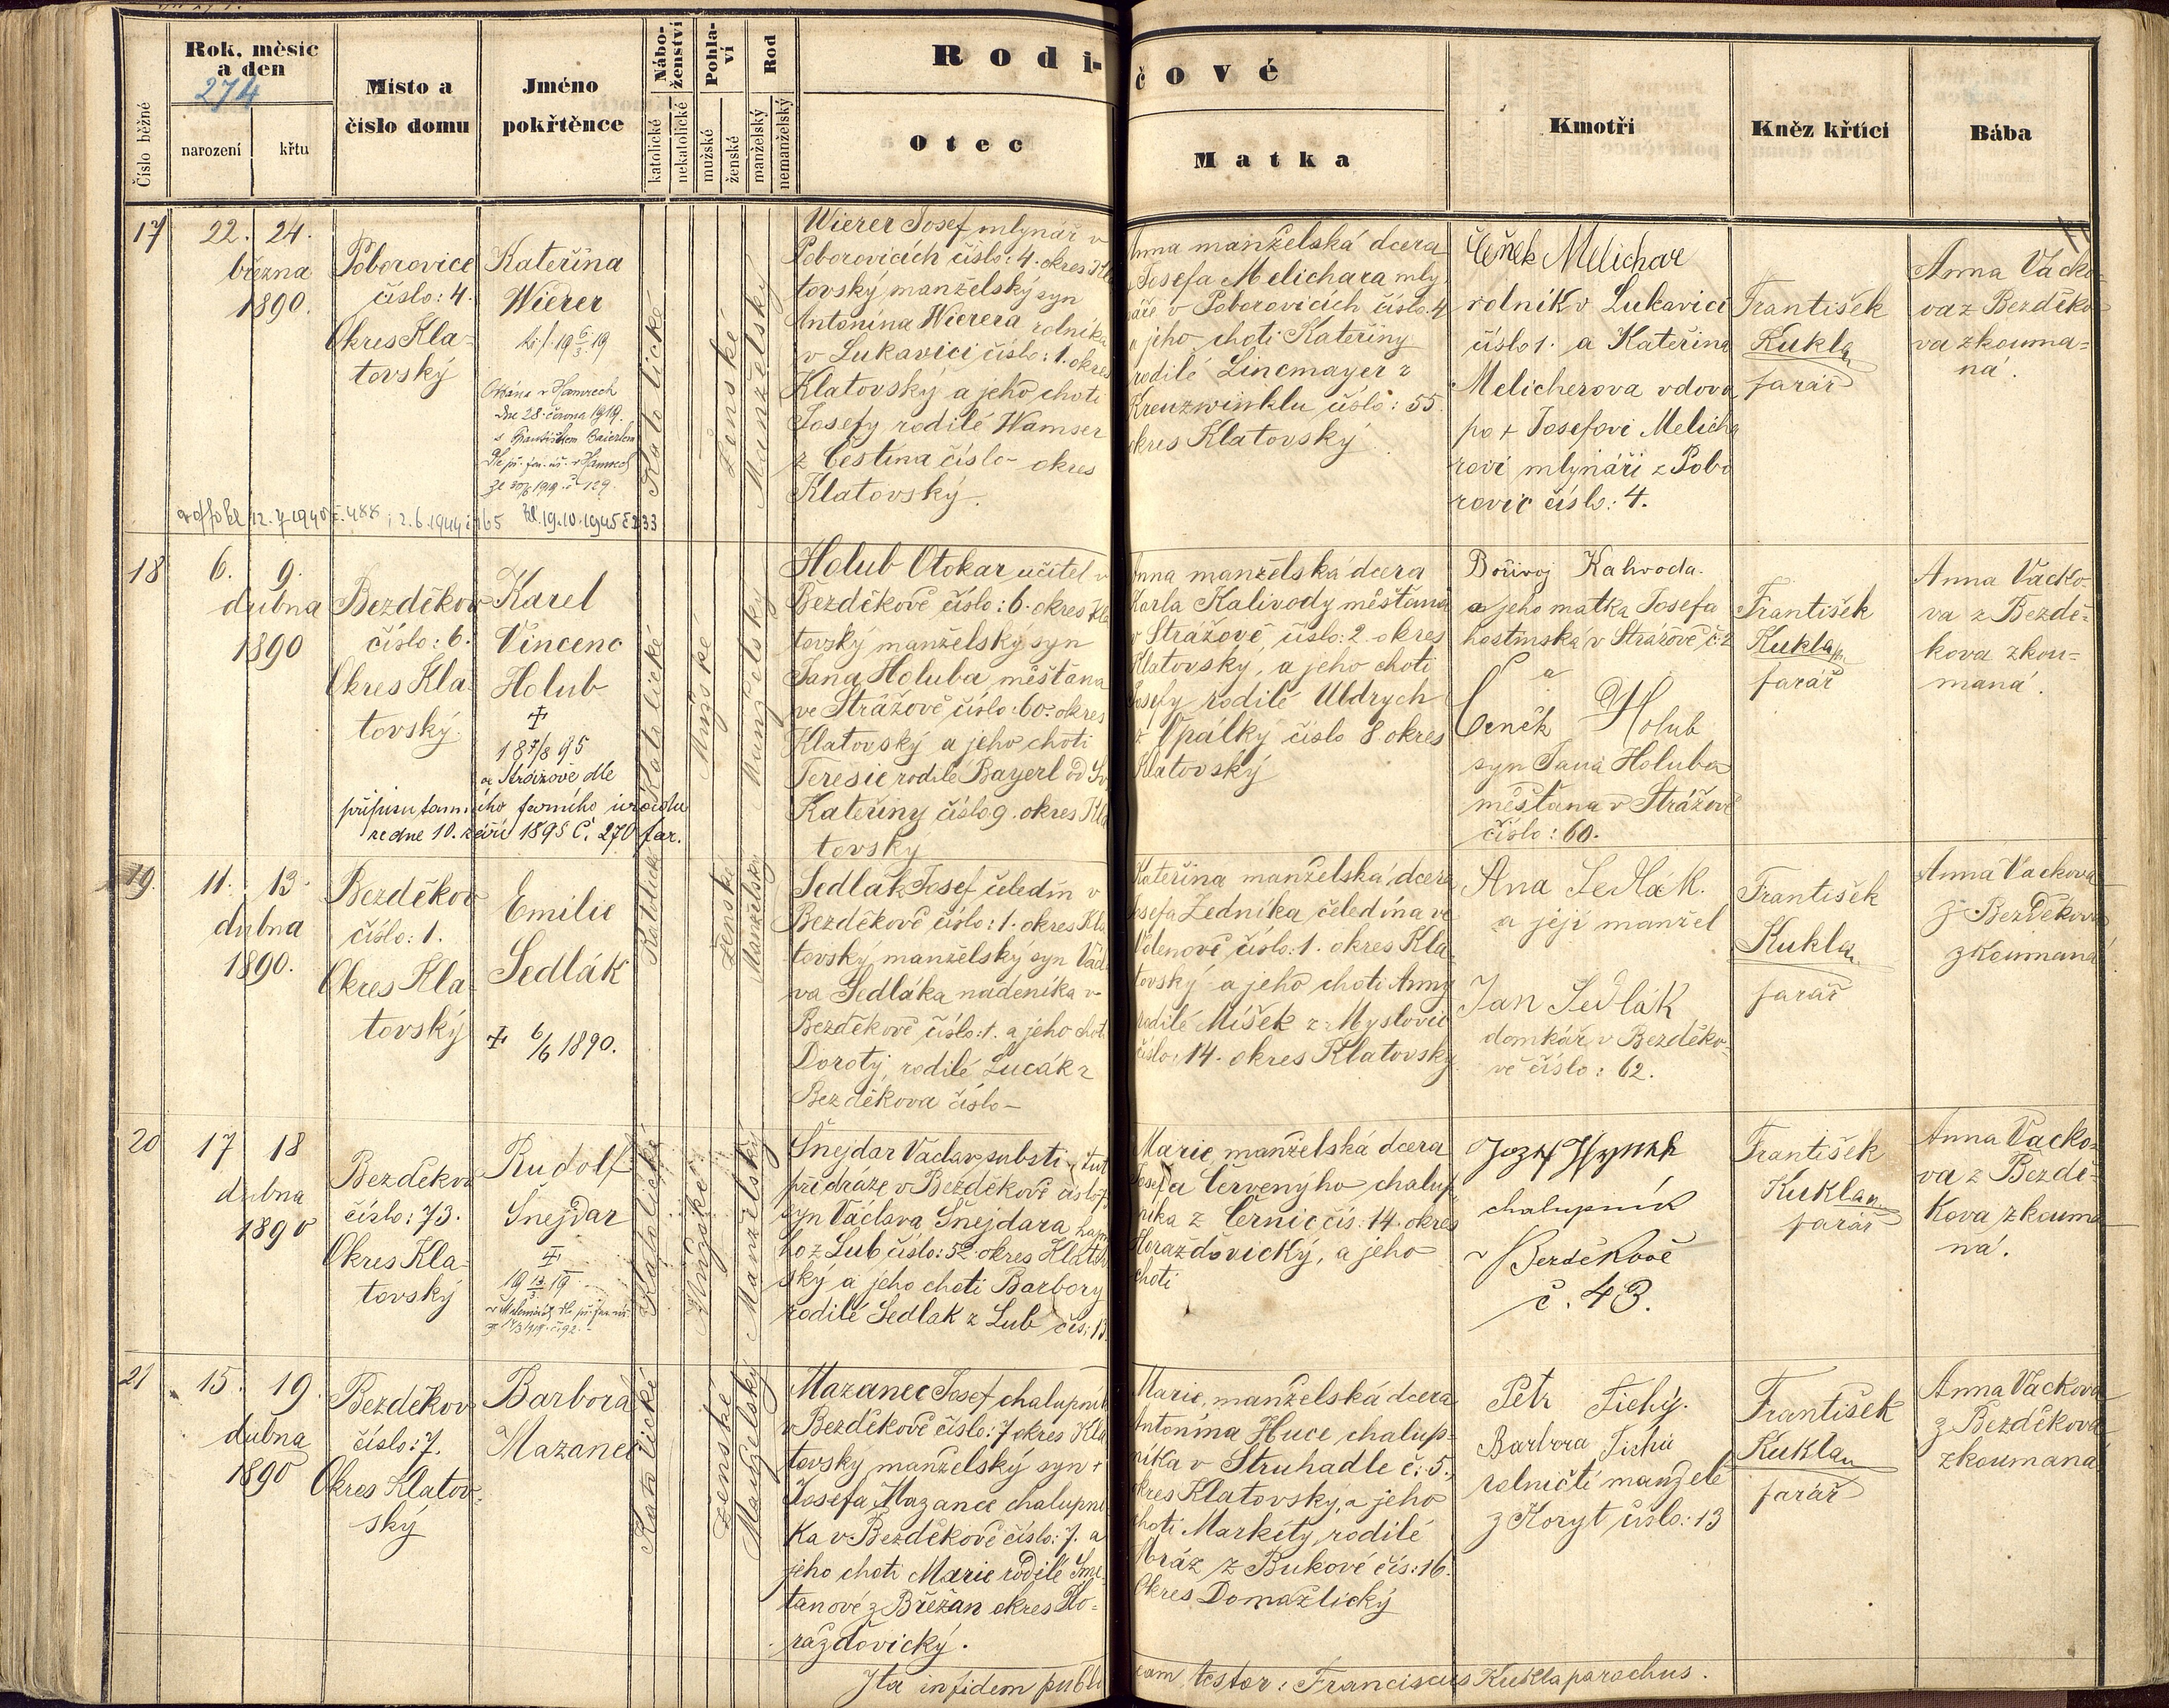 Číslo běžné
Rok, měsíc
a den
274
narození
křtu
Místo a
číslo domu
Jméno
pokřtěnce
Nábo-
ženství
katolické
nekatolické
Pohla-
ví
mužské
ženské
Rod
manželský
nemanželský
Rodi-
čové
Otec
Matka
Kmotři
Kněz křtící
Bába
17
22. 24.
března
1890.
Poborovice
číslo: 4.
Okres Kla-
tovský
Kateřina
Wierer
Oddána v Hamrech
dne 28. června 1919.
s Františkem Baierlem
Katolické
Ženské
Manželský
Wierer Josef mlynář v
Poborovicích číslo: 4. okres Kla
tovský manželský syn
Antonína Wierera rolníka
v Lukavici číslo: 1. okres
Klatovský a jeho choti
Josefy rodilé Wamser
z Čestína číslo- okres
Klatovský.
Anna manželská dcera
Josefa Melichara mly
náře v Poborovicích číslo. 4
a jeho choti Kateřiny
rodilé Lincmayer z
Kreuzwinklu číslo: 55.
okres Klatovský.
Čeněk Melichar
rolník v Lukavici
číslo 1. a Kateřina
Melicherova vdova
po + Josefovi Melicha
rovi mlynáři z Pobo
rovic číslo: 4.
František
Kukla
farář
Anna Vacko-
va z Bezděko
va zkouma=
ná.
12.7.1940 č. 488 ; 2.6.1944 č 165 19.10.1945 č 233
18
6. 9.
dubna
1890
Bezděkov
číslo: 6.
Okres Kla-
tovský.
Karel
Vincenc
Holub
+
18 7/8 95
ve Strážově dle
přípisu tamního farního úřadu
ze dne 10. září 1895 č. 270 far.
Katolické
Mužské
Manželský
Holub Otokar učitel v
Bezděkově číslo: 6. okres Kla
tovský manželský syn
Jana Holuba měšťana
ve Strážově číslo: 60. okres
Klatovský a jeho choti
Teresie rodilé Bayerl od Sv.
Kateřiny číslo 9. okres Kla
tovský
Anna manželská dcera
Karla Kalivody měšťana
v Strážově, číslo: 2. okres
Klatovský, a jeho choti
Josefy rodilé Uldrych
z Opálky číslo 8 okres
Klatovský
Bořivoj Kalivoda.
a jeho matka Josefa
hostinská v Strážově č: 2
a
Čeněk Holub
syn Jana Holuba
měšťana v Strážově
číslo: 60.
František
Kukla
farář
Anna Vacko
va z Bezdě-
kova zkou=
maná.
19.
11. 13.
dubna
1890.
Bezděkov
číslo: 1.
Okres Kla-
tovský
Emilie
Sedlák
+ 6/6 1890.
Katolické
Ženské
Manželský
Sedlák Josef, čeledín v
Bezděkově číslo: 1. okres Kla
tovský, manželský syn Václa
va Sedláka nádeníka v
Bezděkově číslo: 1. a jeho choti
Doroty, rodilé Lucák z
Bezděkova číslo-
Kateřina manželská dcera
Josefa Ledníka čeledína ve
Velenově číslo: 1. okres Kla-
tovský a jeho choti Anny
rodilé Míšek z Myslovic
číslo: 14. okres Klatovský.
Ana Sedlák.
a její manžel
Jan Sedlák
domkář v Bezděko-
vě číslo: 62.
František
Kukla
farář
Anna Vackova
z Bezděkova
zkoumaná
20
17 18
dubna
1890
Bezděkov
číslo: 73.
Okres Kla-
tovský
Rudolf
Šnejdar
+
Katolické
Mužské
Manželský
Šnejdar Vaclav, substitut
při dráze v Bezděkově číslo 73
syn Václava Šnejdara
ho z Lub číslo: 52. okres Klatov
ský a jeho choti Barbory
rodilé Sedlak z Lub čís: 13.
Marie, manželská dcera
Josefa Červenýho chalup
níka z Černic čís. 14. okres
Horažďovický, a jeho
choti
Jozef Hynek
chalupník
v Bezděkově
č. 43.
František
Kukla
farář
Anna Vacko-
va z Bezdě-
kova zkouma
ná.
21
15. 19.
dubna
1890
Bezděkov
číslo: 7.
Okres Klatov-
ský
Barbora
Mazanec
Katolické
Ženské
Manželský
Mazanec Josef chalupník
v Bezděkově číslo: 7 okres Kla
tovský manželský syn +
Josefa Mazance chalupní
ka v Bezděkově číslo: 7. a
jeho choti Marie rodilé Sme-
tanové z Břežan okres Ho-
ražďovický.
Marie, manželská dcera
Antonína Huce chalup-
níka v Struhadle č: 5.
okres Klatovský, a jeho
choti Markéty, rodilé
Mráz z Bukové čís: 16.
Okres Domažlický
Petr Tichý.
Barbora Tichá
rolničtí manželé
z Koryt číslo: 13
František
Kukla
farář
Anna Vackova
z Bezděkova
zkoumaná
Ita in fidem publicam testor: Franciscus Kukla parochus.